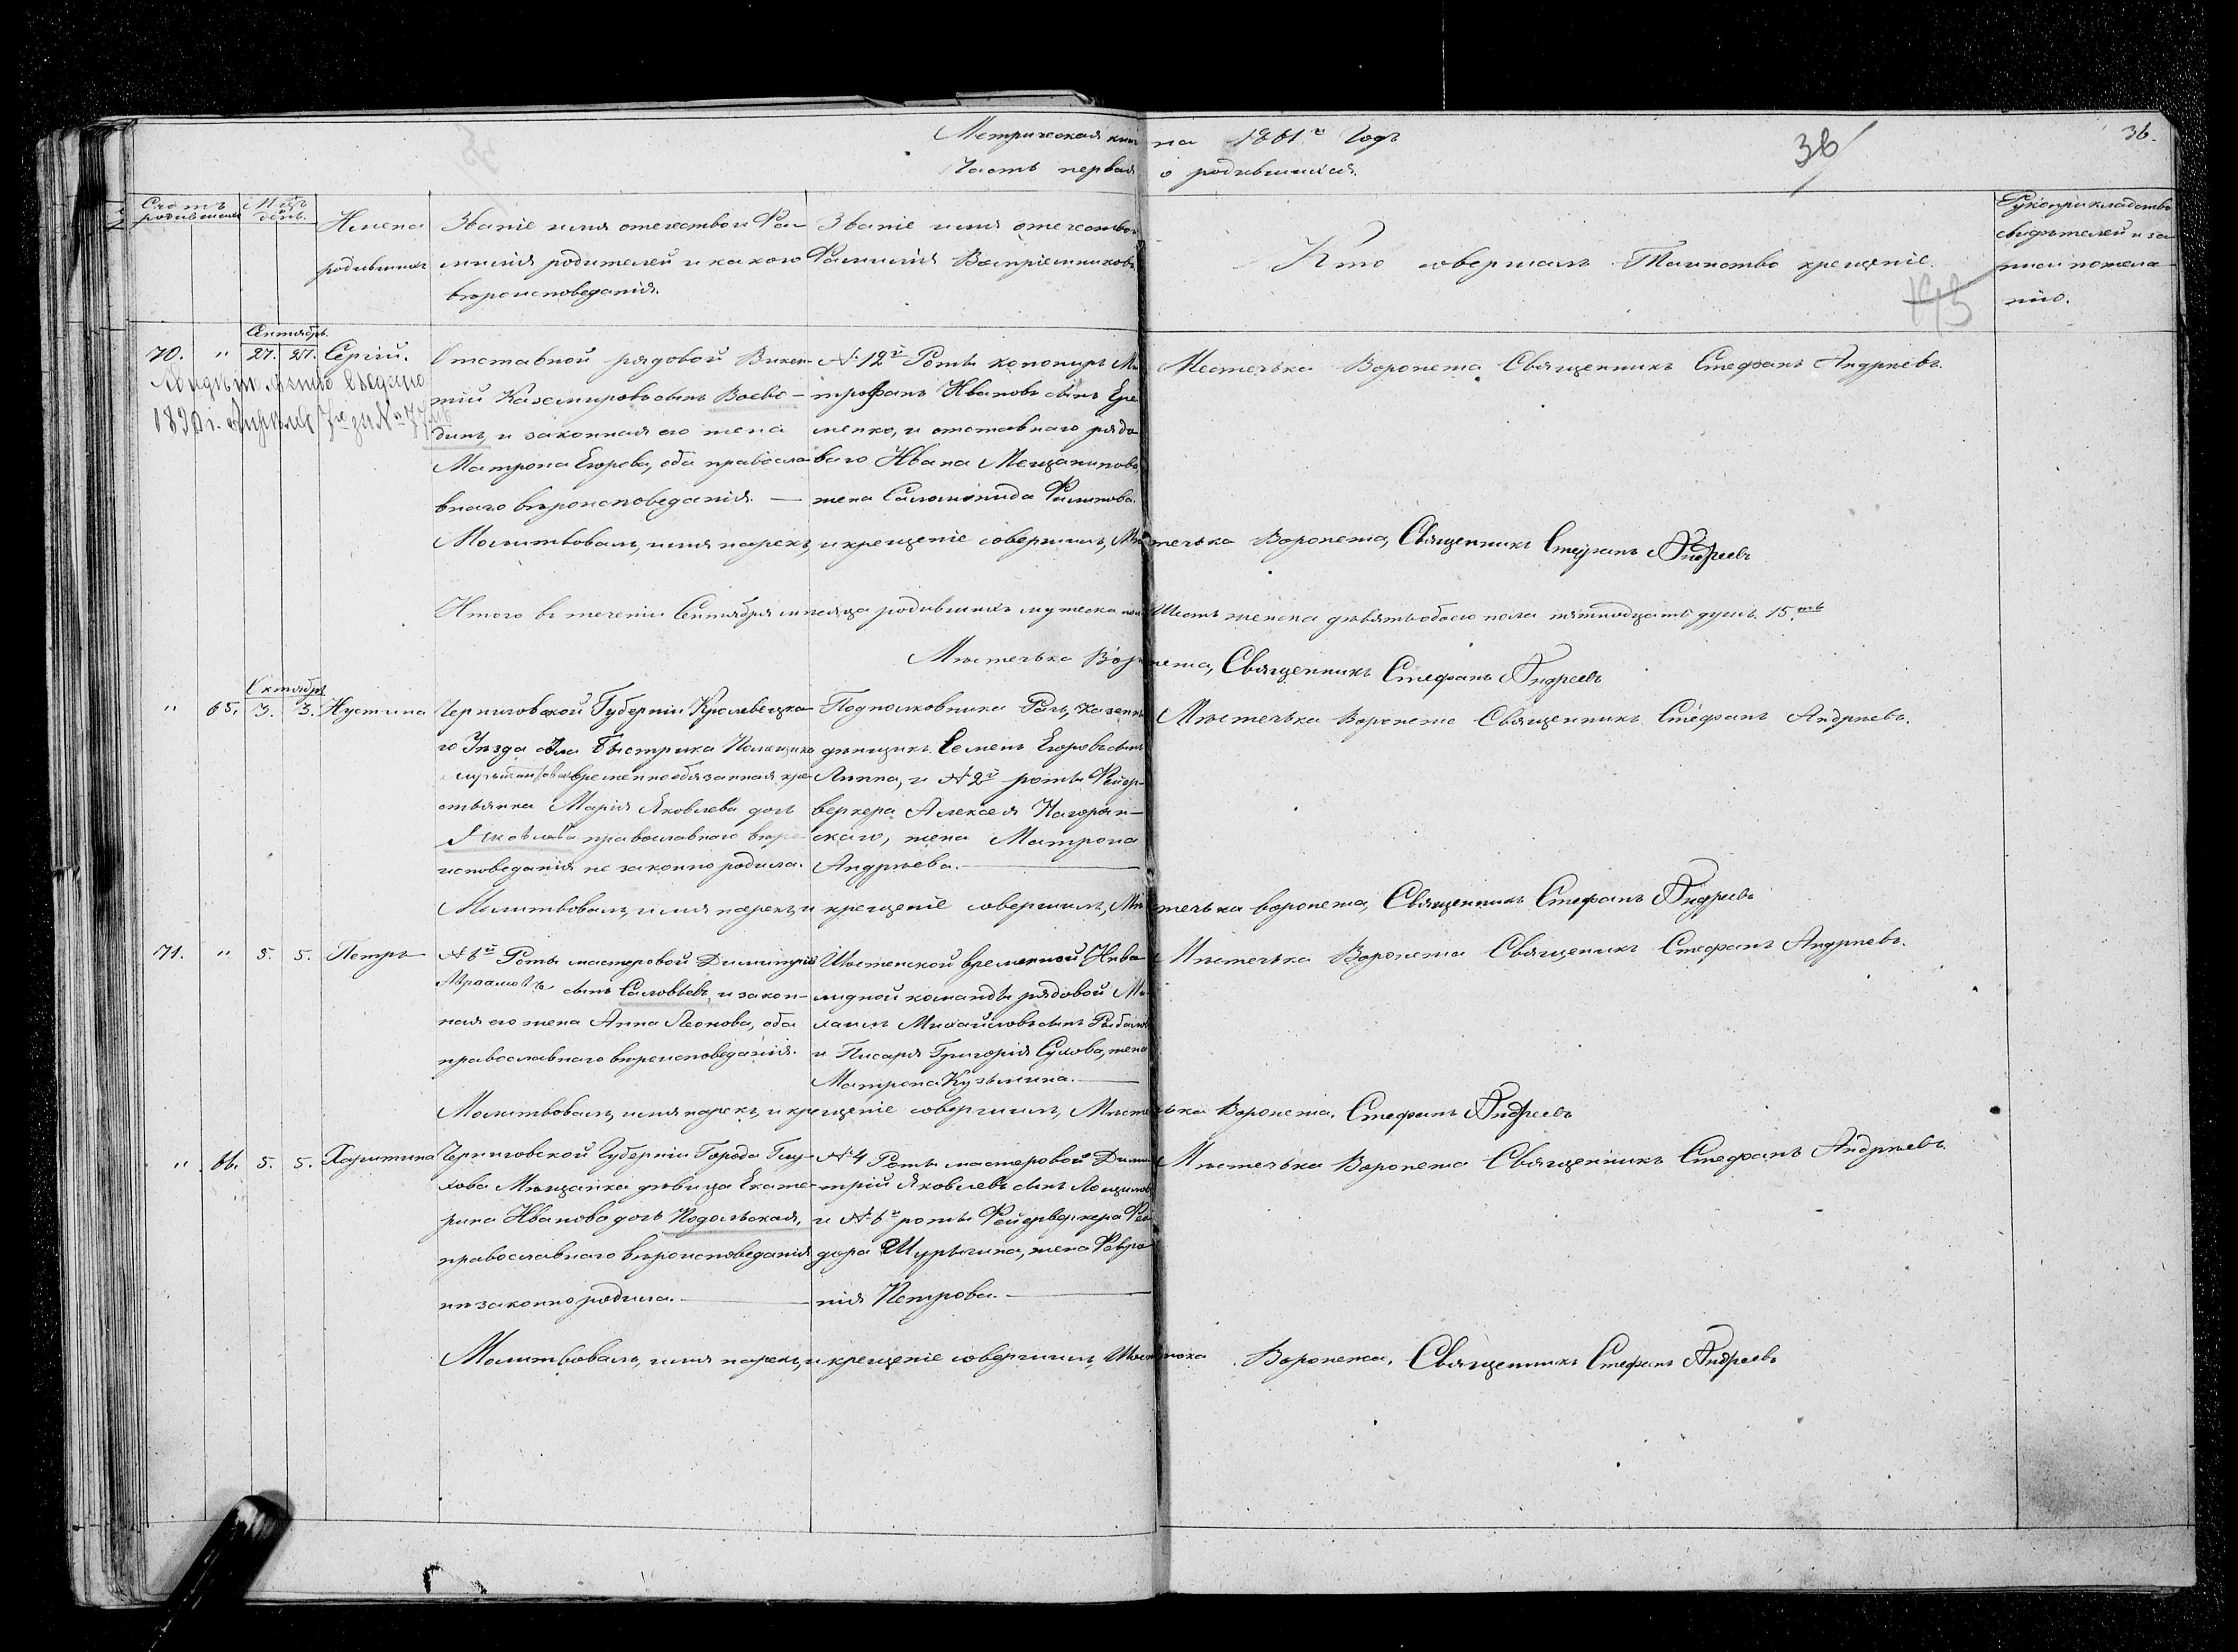 Метрическая книга на 1861й Годъ
36
36.
Часть первая о родившихся.
Счетъ родившихся
Мцъ и день.
Имена родившихся
Званіе имя отечество и Фа-
милія родителей и какого
вѣроисповеданія.
Званіе имя отечество и
Фамилія Воспріемниковъ
Кто совершалъ Таинство крещеніе.
Рукоприкладство
свидѣтелей и за-
писи по жела-
нію.
Сентябрь.
70. " 27. 27. Сергій.
Свидѣтельство
Апрѣля за №
Отставной рядовой Викен-
тій Каземировъ сынъ Воево-
динъ, и законная его жена
Матрона Егорева, оба правосла-
внаго вѣроисповеданія. —
№ 12й Роты канониръ Ми-
трофанъ Ивановъ сынъ Ере-
менко, и отставнаго рядо-
ваго Ивана Мещанинова,
жена Саломонида Филипова.
Местечька Воронежа Священникъ Стефанъ Андрѣевъ.
Молитвовалъ, имя нарекъ, и крещеніе совершилъ, Местечька Воронежа, Священникъ Стефанъ Андреевъ
Итого въ теченіи Сентября месяца родившихъ мужеска пола Шесть женска девять обоего пола пятнадцать душъ. 15.ть
Мѣстечька Воронежа, Священникъ Стефанъ Андреевъ
Октябрь
" 65. 3. 3. Иустина
Черниговской Губерніи Кролевецка-
го Уѣзда села Быстрика Помещика
временнообязанная кре-
стьянка Марія Яковлева дочь
Яковлева православнаго вѣро-
исповеданія не законно родила.
Подполковника казенный
денщикъ Семенъ Егоровъ сынъ
Липпа, и № 2й роты Фейер-
веркера Алексея Нагорян-
скаго, жена Матрона
Андрѣева.
Мѣстечька Воронежа Священникъ Стефанъ Андрѣевъ.
Молитвовалъ, имя нарекъ, и крещеніе совершилъ, Мѣстечька Воронежа, Священникъ Стефанъ Андреевъ
71. " 5. 5. Петръ
№ 6й Роты мастеровой Димитрій
сынъ Саловьевъ, и закон-
ная его жена Анна Леонова, оба
православнаго вѣроисповеданія.
Шостенской временной Инва-
лидной команды рядовой Ми-
хаилъ Михайловъ сынъ Рыбаловъ
и Писаря Григорія Сулова, жена
Матрона Кузьмина.
Мѣстечька Воронежа Священикъ Стефанъ Андрѣевъ.
Молитвовалъ, имя нарекъ, и крещеніе совершилъ, Мѣстечька Воронежа. Стефанъ Андреевъ
" 66. 5. 5. Харитина
Черниговской Губерніи Города Глу-
хова Мѣщанка дѣвица Екате-
рина Иванова дочь Подольская,
православнаго вѣроисповеданія
незаконно родила.
№ 4 Роты мастеровой Дими-
трій Яковлевъ сынъ Лощиловъ
и № 6й роты Фейерверкера Фео-
дора Шурыгина, жена Февро-
нія Петрова.
Мѣстечька Воронежа Священникъ Стефанъ Андрѣевъ.
Молитвовалъ, имя нарекъ, и крещеніе совершилъ, Воронежа, Священникъ Стефанъ Андреевъ